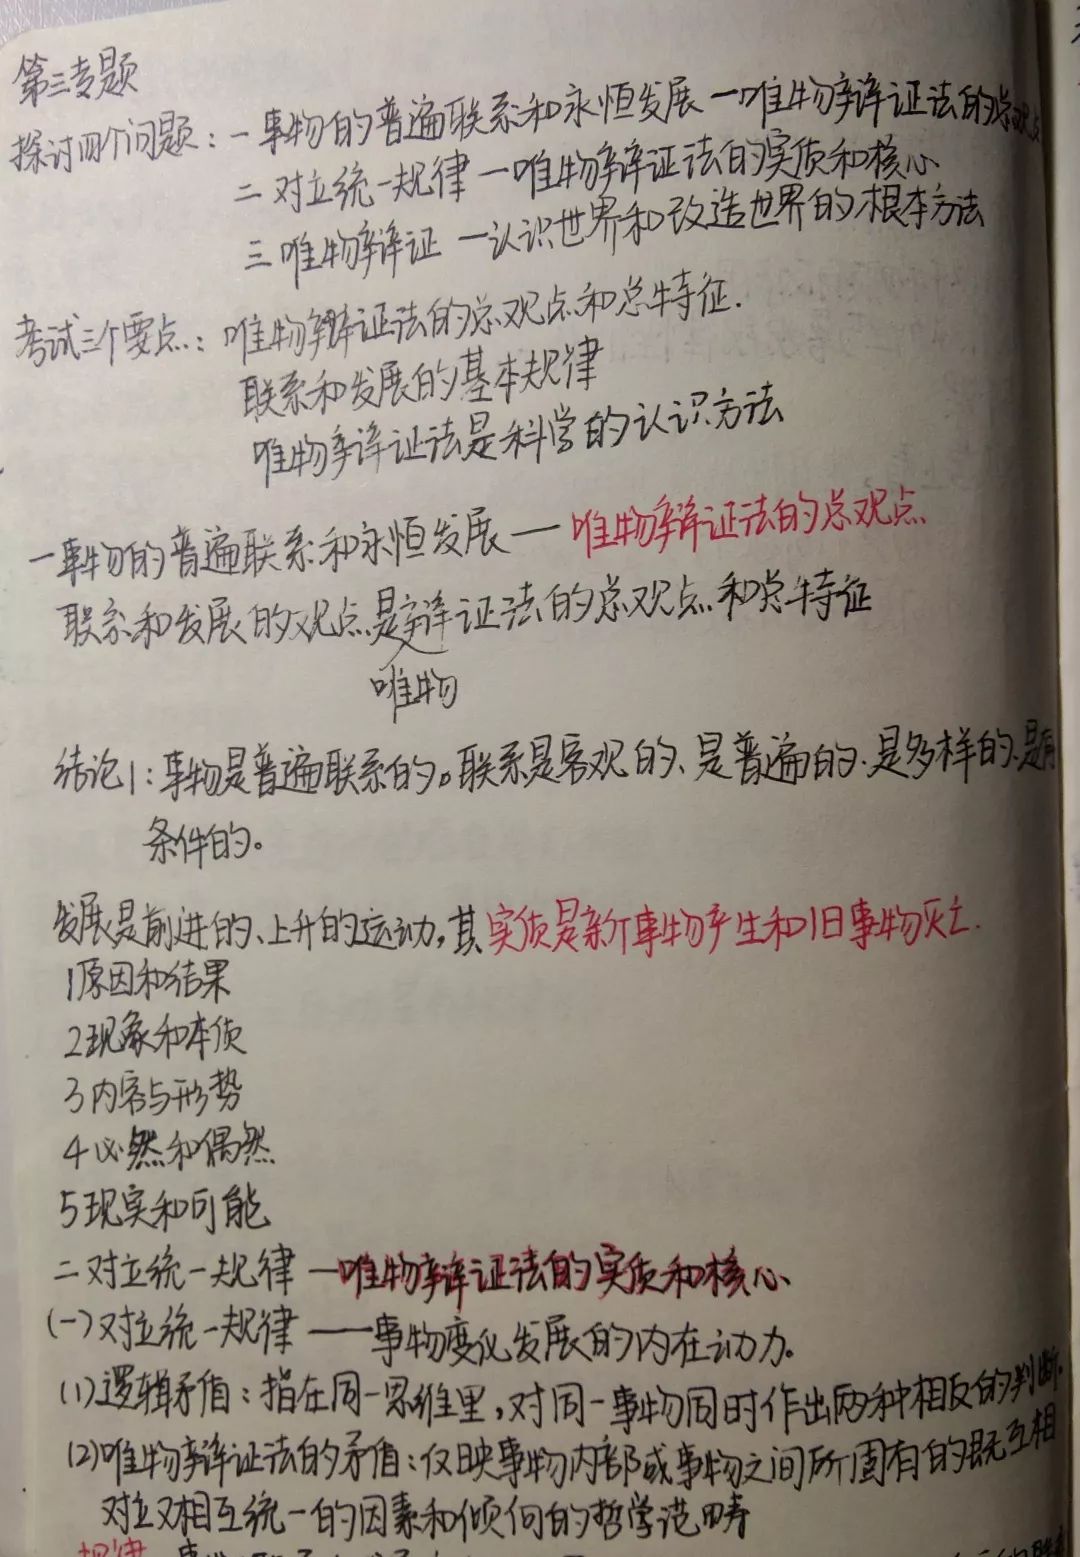 第三专题
探讨四个问题：一事物的普遍联系和永恒发展一唯物辩证法的总观点
二对立统一规律一唯物辩证法的实质和核心
三唯物辩证一认识世界和改造世界的根本方法
考试三个要点：唯物辩证法的总观点和总特征.
联系和发展的基本规律
唯物辩证法是科学的认识方法
一事物的普遍联系和永恒发展—唯物辩证法的总观点
联系和发展的观点是辩证法的总观点和总特征
唯物
结论1：事物是普遍联系的。联系是客观的、是普遍的、是多样的、是有
条件的。
发展是前进的、上升的运动，其实质是新事物产生和旧事物灭亡.
1原因和结果
2现象和本质
3内容与形势
4必然和偶然
5现实和可能
二对立统一规律一唯物辩证法的实质和核心
(一)对立统一规律——事物变化发展的内在动力。
(1)逻辑矛盾：指在同一思维里，对同一事物同时作出两种相反的判断。
(2)唯物辩证法的矛盾：反映事物内部或事物之间所固有的既互相
对立又相互统一的因素和倾向的哲学范畴
规律